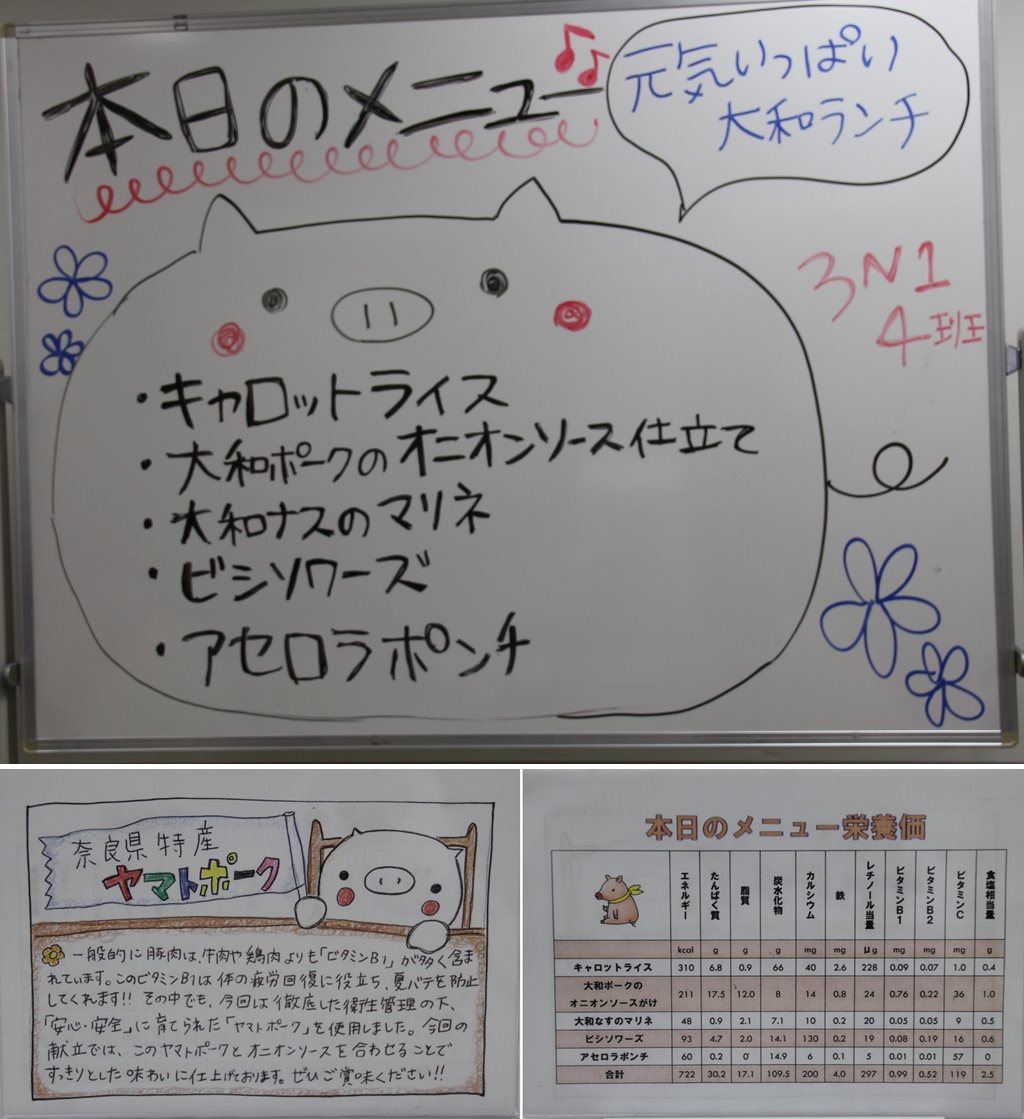 本日のメニュー
元気いっぱい
大和ランチ
3N1
4班
・キャロットライス
・大和ポークのオニオンソース仕立て
・大和ナスのマリネ
・ビシソワーズ
・アセロラポンチ
奈良県特産
ヤマトポーク
一般的に豚肉は、牛肉や鶏肉よりも「ビタミンB1」が多く含ま
れています。このビタミンB1は体の疲労回復に役立ち、夏バテを防止
してくれます!! その中でも、今回は徹底した衛生管理の下、
「安心・安全」に育てられた「ヤマトポーク」を使用しました。今回の
献立では、このヤマトポークとオニオンソースを合わせることで
すっきりとした味わいに仕上げております。ぜひご賞味ください!!
本日のメニュー栄養価
エネルギー たんぱく質 脂質 炭水化物 カルシウム 鉄 レチノール当量 ビタミンB1 ビタミンB2 ビタミンC 食塩相当量
kcal g g g mg mg μg mg mg mg g
キャロットライス 310 6.8 0.9 66 40 2.6 228 0.09 0.07 1.0 0.4
大和ポークの
オニオンソースがけ 211 17.5 12.0 8 14 0.8 24 0.76 0.22 36 1.0
大和なすのマリネ 48 0.9 2.1 7.1 10 0.2 20 0.05 0.05 9 0.5
ビシソワーズ 93 4.7 2.0 14.1 130 0.2 19 0.08 0.19 16 0.6
アセロラポンチ 60 0.2 0 14.9 6 0.1 5 0.01 0.01 57 0
合計 722 30.2 17.1 109.5 200 4.0 297 0.99 0.52 119 2.5